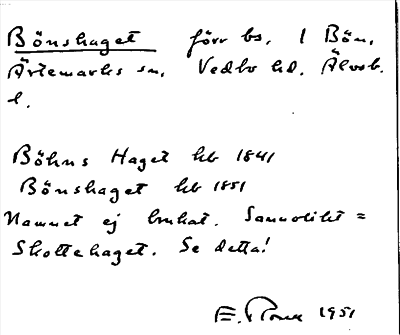 Bönshaget förr bs. 1 Bön,
Ärtemarks sn, Vedbo hd. Älvsb.
l.
Böhns Haget hb 1841
Bönshaget hb 1851
Namnet ej brukat. Sannolikt =
Skottehaget. Se detta!
E. 1951